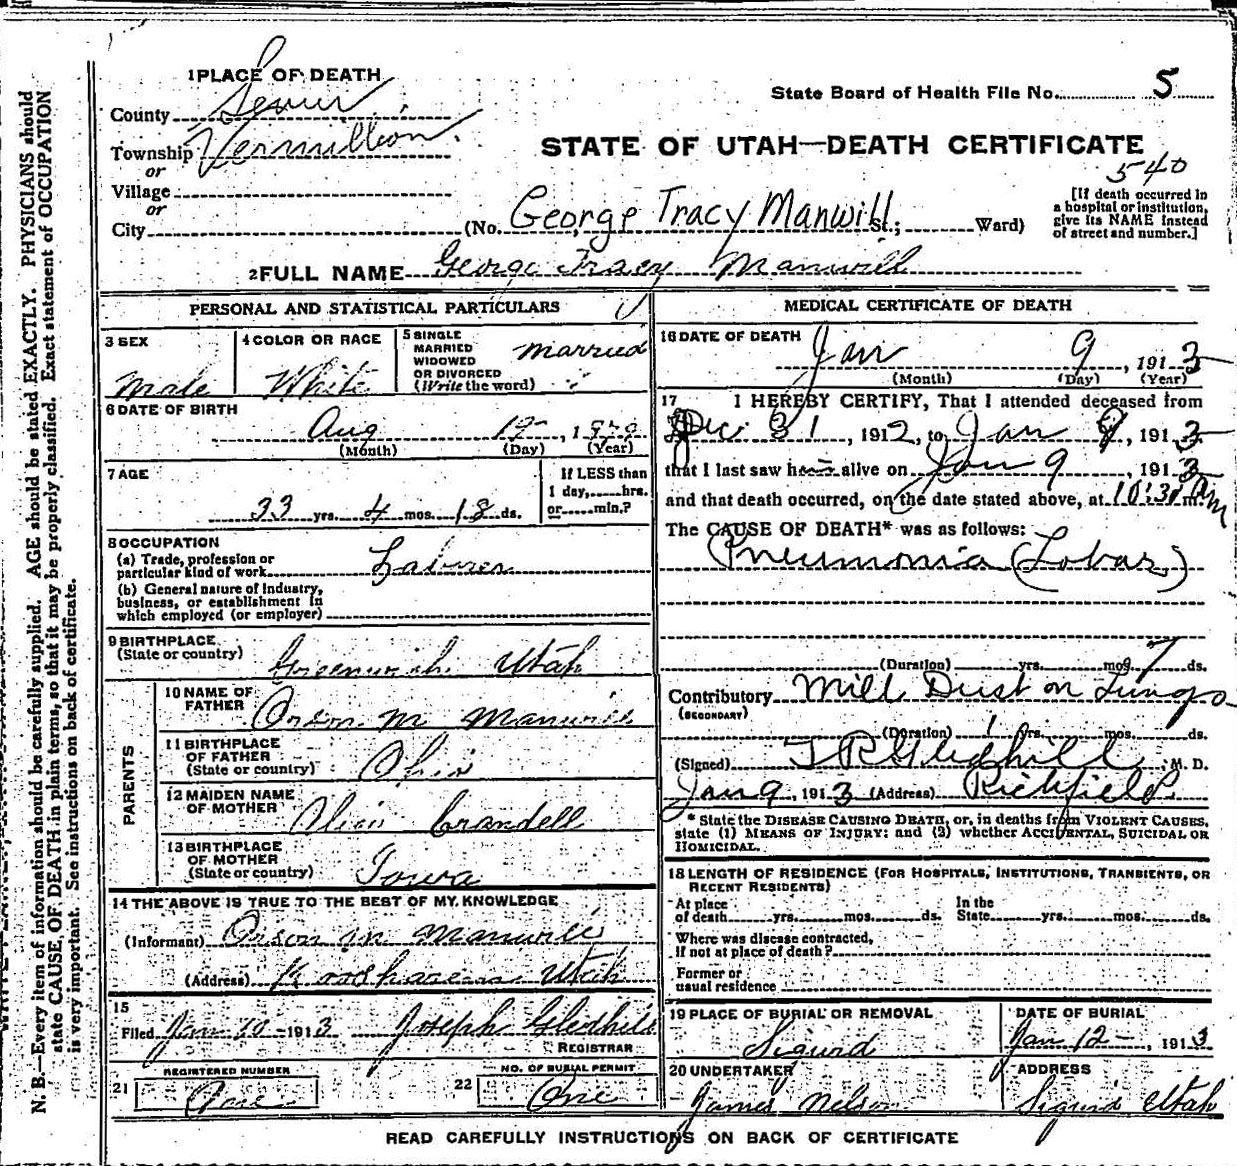 1 PLACE OF DEATH
County Sevier
State Board of Health File No. 5
Township Vermillion
or
STATE OF UTAH—DEATH CERTIFICATE
540
Village
or
City (No. George Tracy Manwill St.; Ward)
[If death occurred in
a hospital or institution,
give its NAME instead
of street and number.]
2 FULL NAME George Tracy Manwill
PERSONAL AND STATISTICAL PARTICULARS
3 SEX
Male
4 COLOR OR RACE
White
5 SINGLE
MARRIED
WIDOWED
OR DIVORCED
(Write the word)
married
6 DATE OF BIRTH
Aug
(Month) (Day) (Year)
7 AGE
33 yrs. 4 mos. 18 ds.
If LESS than
1 day, hrs.
or min.?
8 OCCUPATION
(a) Trade, profession or
particular kind of work Laborer
(b) General nature of industry,
business, or establishment in
which employed (or employer)
9 BIRTHPLACE
(State or country) Greenwich Utah
PARENTS
10 NAME OF
FATHER Orson M Manwill
11 BIRTHPLACE
OF FATHER
(State or country) Ohio
12 MAIDEN NAME
OF MOTHER Crandell
13 BIRTHPLACE
OF MOTHER
(State or country) Iowa
14 THE ABOVE IS TRUE TO THE BEST OF MY KNOWLEDGE
(Informant) Orson M Manwill
(Address) Koosharem Utah
15
Filed Jan 10 - 1913 Joseph Gledhill
REGISTRAR
21 REGISTERED NUMBER
One
22 NO. OF BURIAL PERMIT
One
MEDICAL CERTIFICATE OF DEATH
16 DATE OF DEATH
Jan 9, 1913
(Month) (Day) (Year)
17 I HEREBY CERTIFY, That I attended deceased from
Dec 31, 1912, to Jan 9, 1913
that I last saw h alive on Jan 9, 1913
and that death occurred, on the date stated above, at 10:30 a m.
The CAUSE OF DEATH* was as follows:
Pneumonia (Lobar)
(Duration) yrs. mos. 9 ds.
Contributory Mill Dust on Lungs
(SECONDARY)
(Duration) 1 yrs. mos. ds.
(Signed) T R Gledhill M. D.
Jan 9, 1913 (Address) Richfield
* State the DISEASE CAUSING DEATH, or, in deaths from VIOLENT CAUSES,
state (1) MEANS OF INJURY: and (2) whether ACCIDENTAL, SUICIDAL OR
HOMICIDAL.
18 LENGTH OF RESIDENCE (FOR HOSPITALS, INSTITUTIONS, TRANSIENTS, OR
RECENT RESIDENTS)
At place In the
of death yrs. mos. ds. State yrs. mos. ds.
Where was disease contracted,
If not at place of death?
Former or
usual residence
19 PLACE OF BURIAL OR REMOVAL
Sigurd
DATE OF BURIAL
Jan 12 -, 1913
20 UNDERTAKER
James Nelson
ADDRESS
Sigurd Utah
READ CAREFULLY INSTRUCTIONS ON BACK OF CERTIFICATE
N. B.—Every item of information should be carefully supplied. AGE should be stated EXACTLY. PHYSICIANS should
state CAUSE OF DEATH in plain terms, so that it may be properly classified. Exact statement of OCCUPATION
is very important. See instructions on back of certificate.